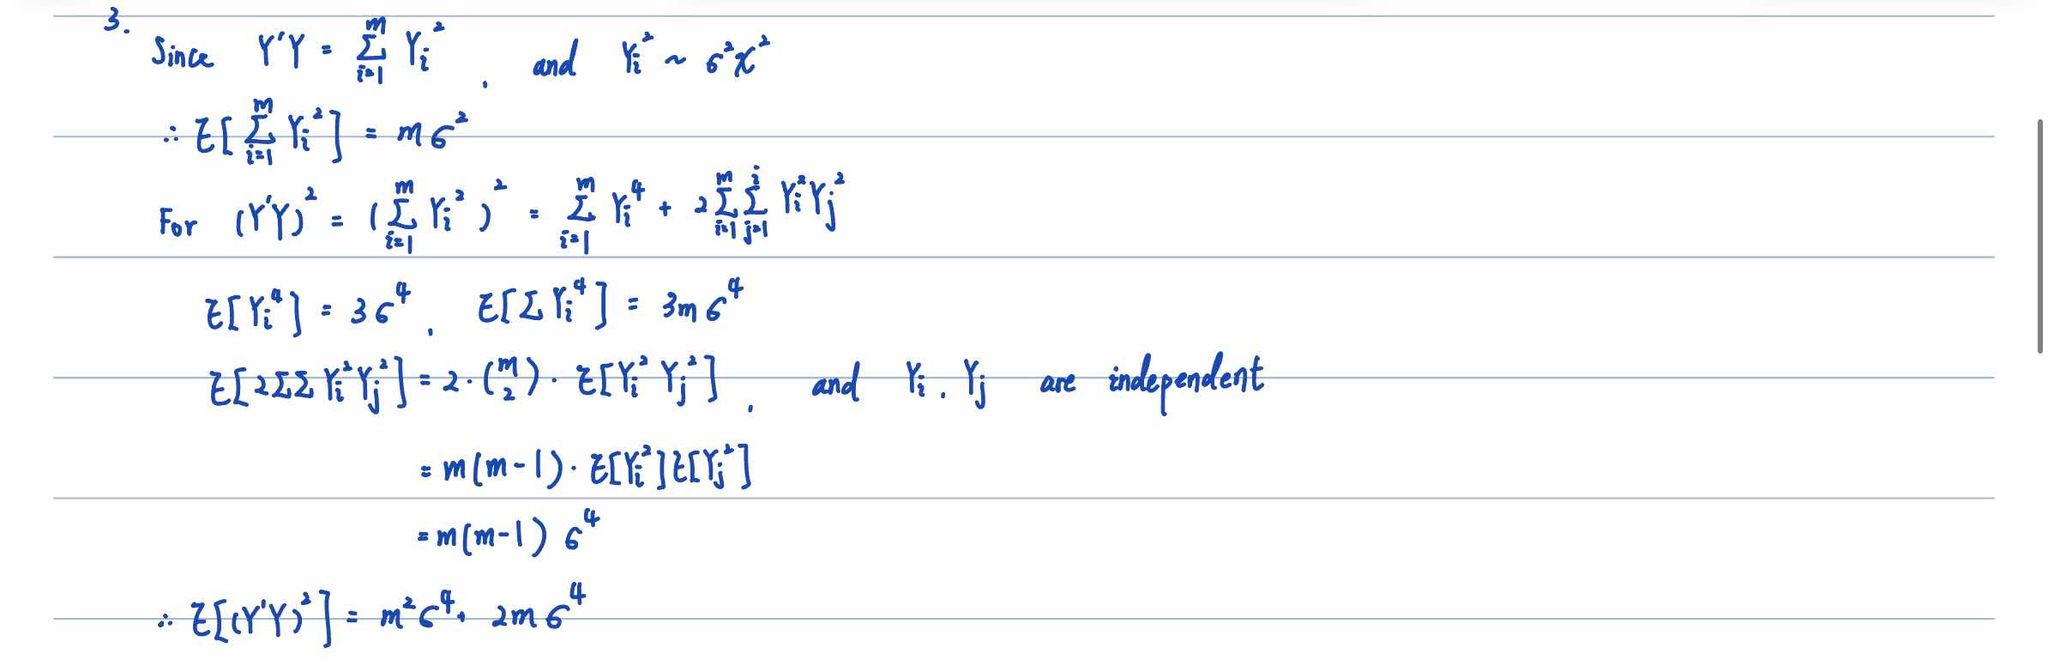 3.
Since Y'Y = ∑_{i=1}^{m} Y_i^2 , and Y_i^2 ~ σ^2 χ^2
∴ E[∑_{i=1}^{m} Y_i^2] = mσ^2
For (Y'Y)^2 = (∑_{i=1}^{m} Y_i^2)^2 = ∑_{i=1}^{m} Y_i^4 + 2∑_{i=1}^{m}∑_{j=1}^{i} Y_i^2 Y_j^2
E[Y_i^4] = 3σ^4 , E[∑ Y_i^4] = 3mσ^4
E[2∑∑ Y_i^2 Y_j^2] = 2 · (m 2) · E[Y_i^2 Y_j^2] , and Y_i , Y_j are independent
= m(m-1) · E[Y_i^2]E[Y_j^2]
= m(m-1) σ^4
∴ E[(Y'Y)^2] = m^2σ^4 + 2mσ^4